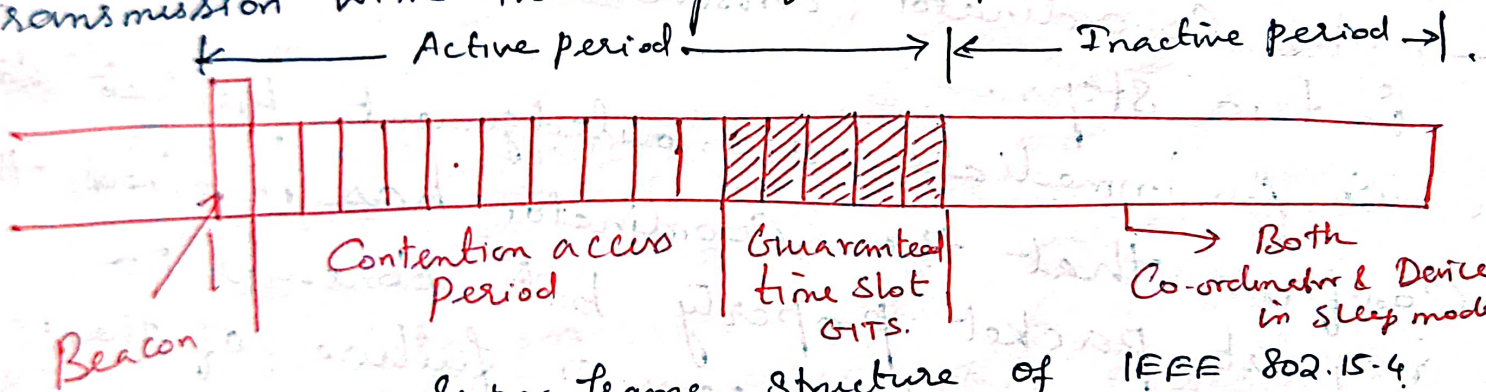 transmission
Active period
Inactive period
Contention access
Period
Guaranteed
time slot
GTS.
Both
Co-ordinator & Device
in sleep mode
Beacon
structure of IEEE 802.15.4